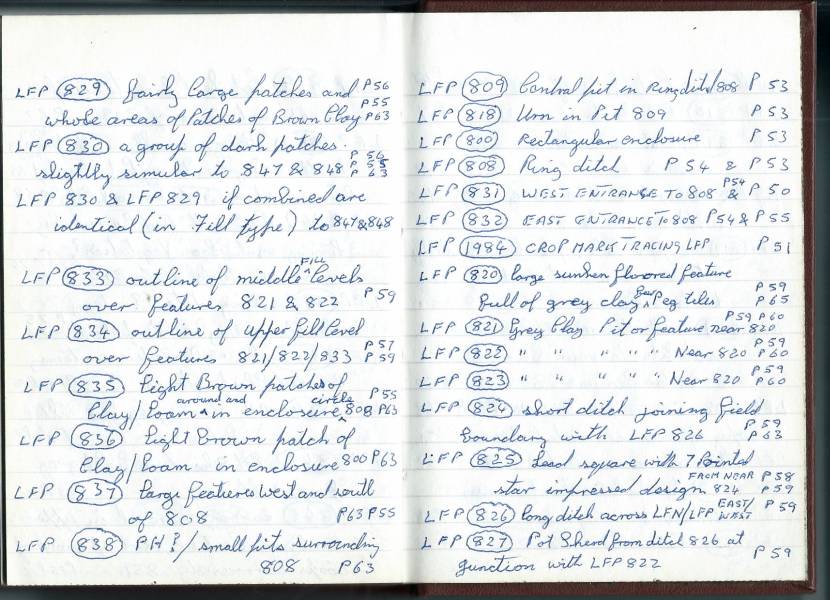 LFP 829 Fairly large patches and P56
P55
whole areas of Patches of Brown Clay P63
LFP 830 a group of dark patches.
slightly simular to 847 & 848 P56 P55 P63
LFP 830 & LFP 829 if combined are
identical (in Fill type) to 847&848
LFP 833 outline of middle FILL levels
over features 821 & 822 P59
LFP 834 outline of upper fill level
over features 821/822/833 P57 P59
LFP 835 Light Brown patches of P55
Clay/loam around and in enclosure circle 808 P63
LFP 836 Light Brown patch of
Clay/loam in enclosure 800 P63
LFP 837 Large features west and south
of 808 P63 P55
LFP 838 PH?/small pits surrounding
808 P63
LFP 809 Central pit in Ring ditch 808 P 53
LFP 818 Urn in Pit 809 P 53
LFP 800 Rectangular enclosure P 53
LFP 808 Ring ditch P 54 & P 53
LFP 831 WEST ENTRANCE TO 808 P54 & P 50
LFP 832 EAST ENTRANCE TO 808 P54 & P 55
LFP 1984 CROP MARK TRACING LFP P 51
LFP 820 large sunken floored feature
full of grey clay few Peg tiles P 59 P 65
LFP 821 Grey Clay Pit or feature near 820 P59 P60
LFP 822 " " " " " Near 820 P 59 P 60
LFP 823 " " " " " Near 820 P 59 P 60
LFP 824 short ditch joining field
boundary with LFP 826 P 59 P 63
LFP 825 Lead square with 7 Pointed
star impressed design FROM NEAR 824 P 58 P 59
LFP 826 long ditch across LFN/LFP EAST/WEST P 59
LFP 827 Pot Sherd from ditch 826 at
junction with LFP 822 P 59